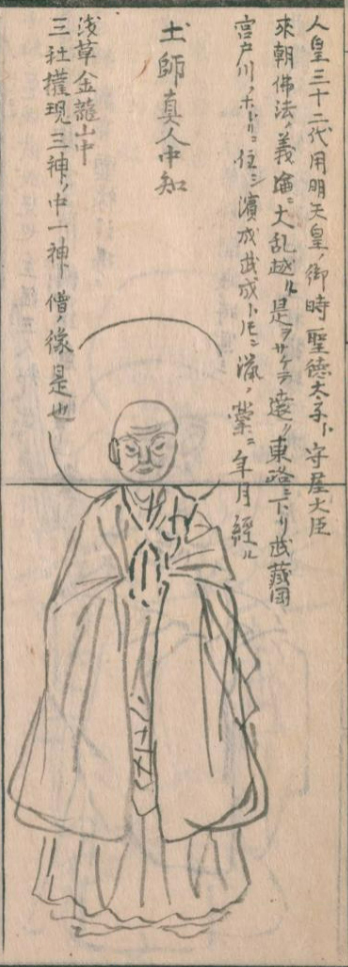 人皇三十二代用明天皇ノ御時聖徳太子ト守屋大臣
來朝佛法ノ義論ニ大乱起ル是ヲサケテ遠ク東路ニ下リ武蔵國
宮戸川ノホトリニ住シ濱成武成トモニ漁ノ業ニ年月經ル
土師真人中知
浅草金龍山中
三社権現三神ノ中一神ト僧ノ像是也